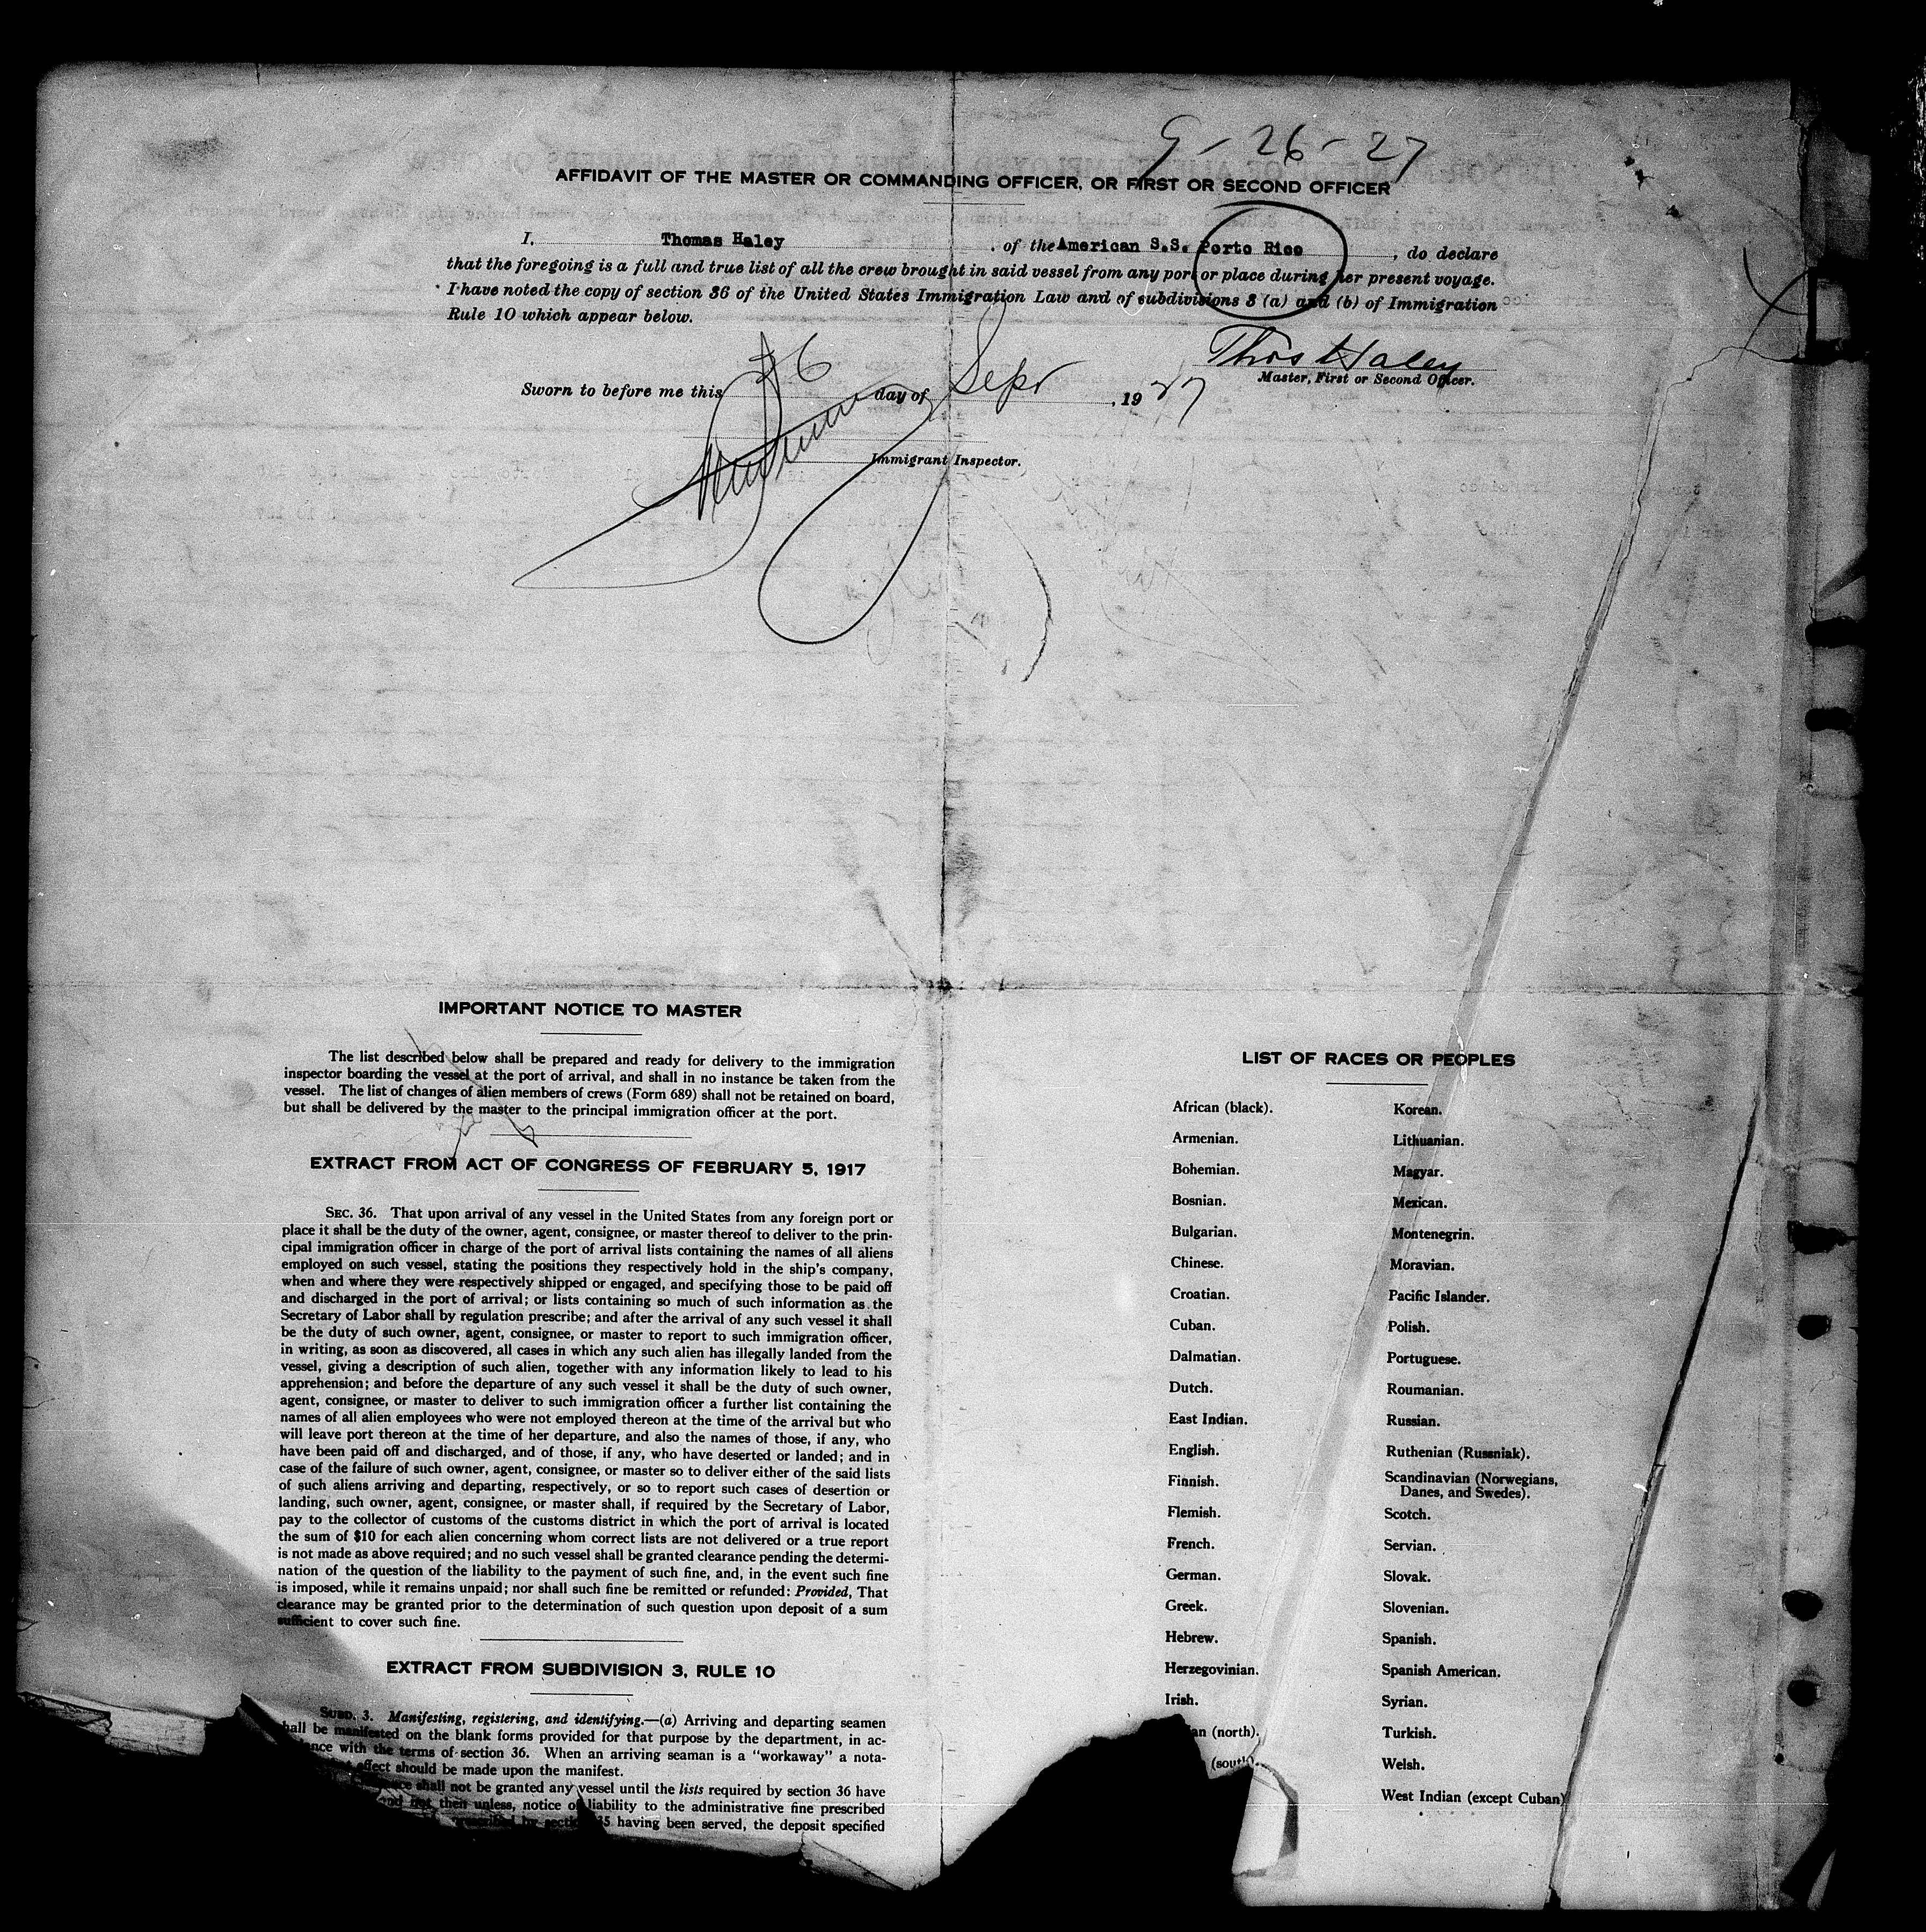 9-26-27
AFFIDAVIT OF THE MASTER OR COMMANDING OFFICER, OR FIRST OR SECOND OFFICER
I, Thomas Haley, of the American S.S. Porto Rico, do declare
that the foregoing is a full and true list of all the crew brought in said vessel from any port or place during her present voyage.
I have noted the copy of section 36 of the United States Immigration Law and of subdivisions 3 (a) and (b) of Immigration
Rule 10 which appear below.
Thos Haley
Master, First or Second Officer.
Sworn to before me this 26 day of Sept, 1927
Immigrant Inspector.
IMPORTANT NOTICE TO MASTER
The list described below shall be prepared and ready for delivery to the immigration
inspector boarding the vessel at the port of arrival, and shall in no instance be taken from the
vessel. The list of changes of alien members of crews (Form 689) shall not be retained on board,
but shall be delivered by the master to the principal immigration officer at the port.
EXTRACT FROM ACT OF CONGRESS OF FEBRUARY 5, 1917
SEC. 36. That upon arrival of any vessel in the United States from any foreign port or
place it shall be the duty of the owner, agent, consignee, or master thereof to deliver to the prin-
cipal immigration officer in charge of the port of arrival lists containing the names of all aliens
employed on such vessel, stating the positions they respectively hold in the ship's company,
when and where they were respectively shipped or engaged, and specifying those to be paid off
and discharged in the port of arrival; or lists containing so much of such information as the
Secretary of Labor shall by regulation prescribe; and after the arrival of any such vessel it shall
be the duty of such owner, agent, consignee, or master to report to such immigration officer,
in writing, as soon as discovered, all cases in which any such alien has illegally landed from the
vessel, giving a description of such alien, together with any information likely to lead to his
apprehension; and before the departure of any such vessel it shall be the duty of such owner,
agent, consignee, or master to deliver to such immigration officer a further list containing the
names of all alien employees who were not employed thereon at the time of the arrival but who
will leave port thereon at the time of her departure, and also the names of those, if any, who
have been paid off and discharged, and of those, if any, who have deserted or landed; and in
case of the failure of such owner, agent, consignee, or master so to deliver either of the said lists
of such aliens arriving and departing, respectively, or so to report such cases of desertion or
landing, such owner, agent, consignee, or master shall, if required by the Secretary of Labor,
pay to the collector of customs of the customs district in which the port of arrival is located
the sum of $10 for each alien concerning whom correct lists are not delivered or a true report
is not made as above required; and no such vessel shall be granted clearance pending the determi-
nation of the question of the liability to the payment of such fine, and, in the event such fine
is imposed, while it remains unpaid; nor shall such fine be remitted or refunded: Provided, That
clearance may be granted prior to the determination of such question upon deposit of a sum
sufficient to cover such fine.
EXTRACT FROM SUBDIVISION 3, RULE 10
SUBD. 3. Manifesting, registering, and identifying.—(a) Arriving and departing seamen
shall be manifested on the blank forms provided for that purpose by the department, in ac-
with the terms of section 36. When an arriving seaman is a "workaway" a nota-
effect should be made upon the manifest.
shall not be granted any vessel until the lists required by section 36 have
and not then unless, notice of liability to the administrative fine prescribed
by section 35 having been served, the deposit specified
LIST OF RACES OR PEOPLES
African (black).
Armenian.
Bohemian.
Bosnian.
Bulgarian.
Chinese.
Croatian.
Cuban.
Dalmatian.
Dutch.
East Indian.
English.
Finnish.
Flemish.
French.
German.
Greek.
Hebrew.
Herzegovinian.
Irish.
(north).
(south).
Korean.
Lithuanian.
Magyar.
Mexican.
Montenegrin.
Moravian.
Pacific Islander.
Polish.
Portuguese.
Roumanian.
Russian.
Ruthenian (Russniak).
Scandinavian (Norwegians,
Danes, and Swedes).
Scotch.
Servian.
Slovak.
Slovenian.
Spanish.
Spanish American.
Syrian.
Turkish.
Welsh.
West Indian (except Cuban)